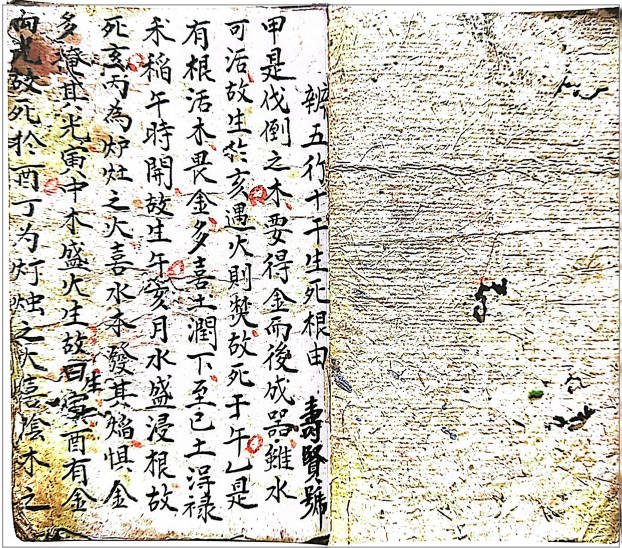 辨五行十干生死根由 壽賢號
甲是伐倒之木要得金而後成器雖水
可活故生於亥遇火則焚故死于午乙是
有根活木畏金多喜土潤下至已土淂祿
禾稲午時開故生午亥月水盛浸根故
死亥丙為炉灶之火喜水木發其焰惧金
多掩其光寅中木盛火生故曰生寅酉有金
而光故死於酉丁为灯烛之火喜陰木之